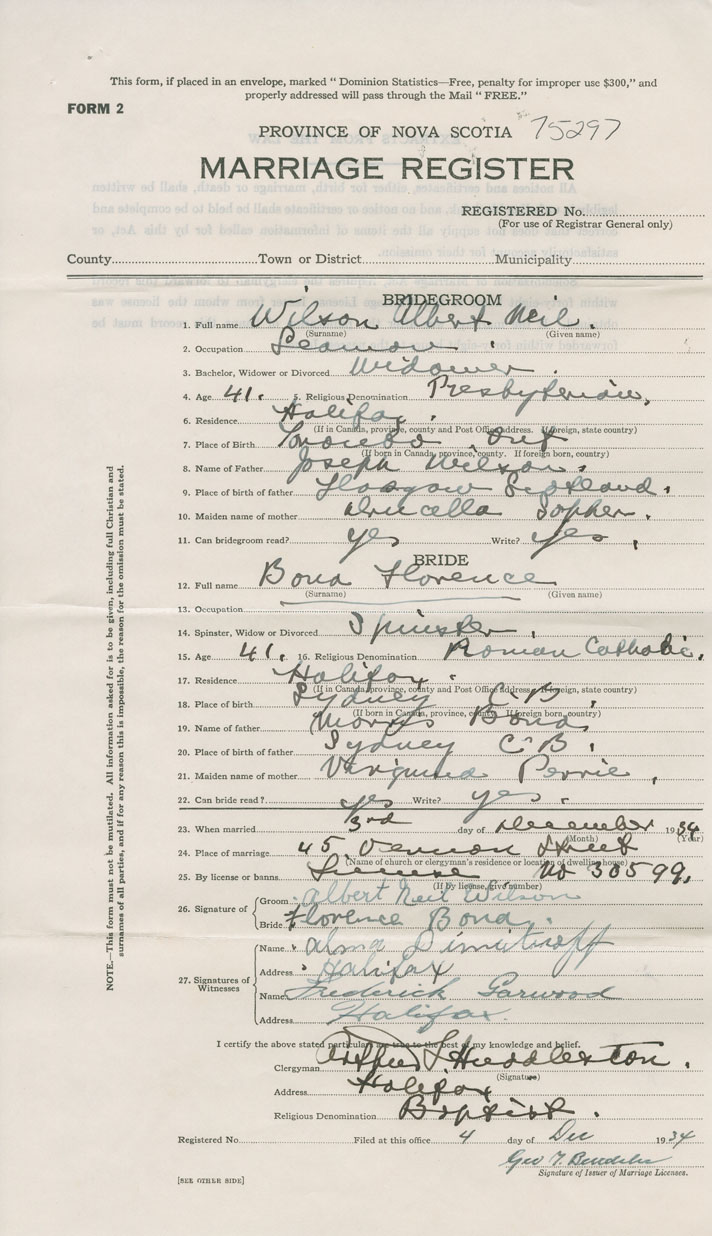 This form, if placed in an envelope, marked " Dominion Statistics—Free, penalty for improper use $300," and
properly addressed will pass through the Mail " FREE."
FORM 2
PROVINCE OF NOVA SCOTIA 75297
MARRIAGE REGISTER
REGISTERED No.
(For use of Registrar General only)
County Town or District Municipality
BRIDEGROOM
1. Full name Wilson Albert Neil.
(Surname) (Given name)
2. Occupation Seaman.
3. Bachelor, Widower or Divorced Widower.
4. Age 41. 5. Religious Denomination Presbyterian,
6. Residence Halifax.
(If in Canada, province, county and Post Office address. If foreign, state country)
7. Place of Birth Ont
(If born in Canada, province, county. If foreign born, country)
8. Name of Father Joseph Wilson.
9. Place of birth of father Glasgow Scotland.
10. Maiden name of mother Drucella Sopher.
11. Can bridegroom read? yes Write? yes,
BRIDE
12. Full name Bond Florence
(Surname) (Given name)
13. Occupation
14. Spinster, Widow or Divorced Spinster.
15. Age 41. 16. Religious Denomination Roman Catholic.
17. Residence Halifax.
(If in Canada, province, county and Post Office address. If foreign, state country)
18. Place of birth Sydney C.B,
(If born in Canada, province, county. If foreign born, country)
19. Name of father Bond,
20. Place of birth of father Sydney C B.
21. Maiden name of mother
22. Can bride read? yes Write? yes.
23. When married 3rd day of December 1934
(Month) (Year)
24. Place of marriage 45 Vernon Street
(Name of church or clergyman's residence or location of dwelling house)
25. By license or banns License No 38599,
(If by license, give number)
26. Signature of
Groom Albert Neil Wilson
Bride Florence Bond.
27. Signatures of Witnesses
Name Alma Dimitroff
Address Halifax
Name Frederick Garwood
Address Halifax.
I certify the above stated particulars are true to the best of my knowledge and belief.
Clergyman Huddleston.
(Signature)
Address Halifax
Religious Denomination Baptist.
Registered No. Filed at this office 4 day of Dec 1934
Geo T.
Signature of Issuer of Marriage Licenses.
[SEE OTHER SIDE]
NOTE.—This form must not be mutilated. All information asked for is to be given, including full Christian and
surnames of all parties, and if for any reason this is impossible, the reason for the omission must be stated.